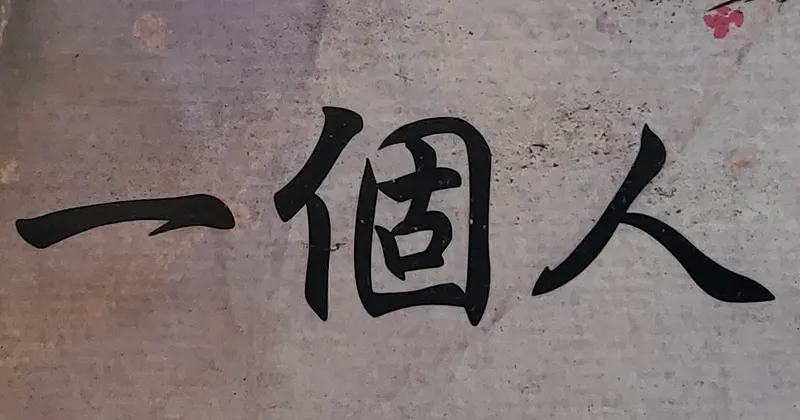 一個人